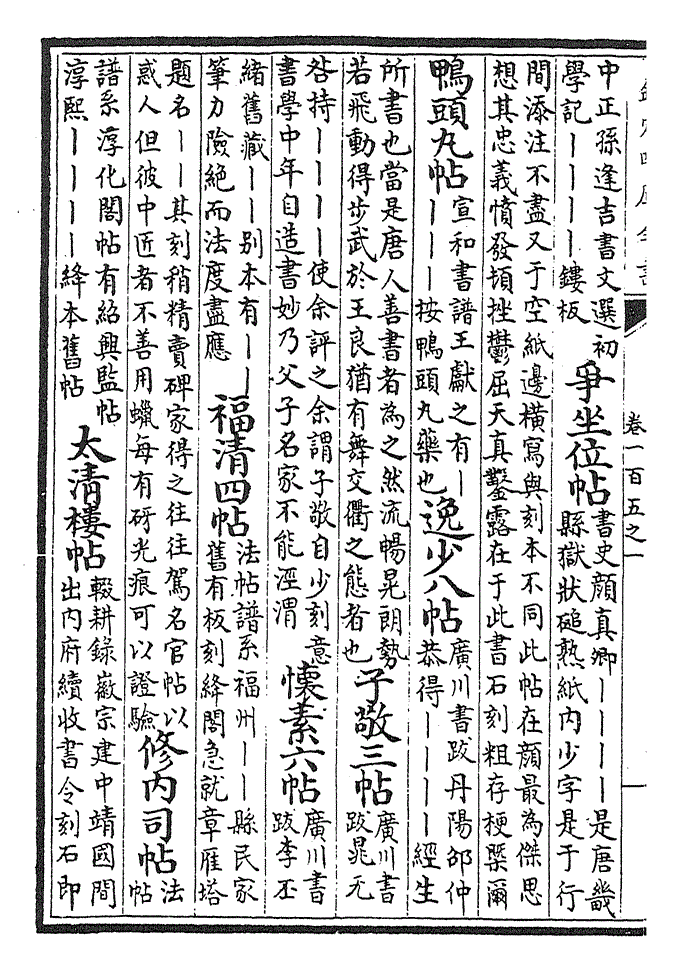 欽定四庫全書
卷一百五之一
中正孫逢吉書文選初
學記｜｜｜｜鏤板
爭坐位帖
書史顔真卿｜｜｜｜是唐畿
縣獄狀磓熟紙内少字是于行
間添注不盡又于空紙邊橫寫與刻本不同此帖在顔最為傑思
想其忠義憤發頓挫鬱屈天真鑿露在于此書石刻粗存梗槩爾
鴨頭丸帖
宣和書譜王獻之有｜
｜｜｜按鴨頭丸藥也
逸少八帖
廣川書跋丹陽邵仲
恭得｜｜｜｜經生
所書也當是唐人善書者為之然流暢晃朗勢
若飛動得步武於王良猶有舞交衢之態者也
子敬三帖
廣川書
跋晁无
咎持｜｜｜｜使余評之余謂子敬自少刻意
書學中年自造書妙乃父子名家不能涇渭
懷素六帖
廣川書
跋李丕
緒舊藏｜｜别本有｜｜
筆力險絶而法度盡應
福清四帖
法帖譜系福州｜｜縣民家
舊有板刻絳閣急就章雁塔
題名｜｜其刻稍精賣碑家得之往往駕名官帖以
惑人但彼中匠者不善用蠟每有砑光痕可以證驗
修内司帖
法
帖
譜系淳化閣帖有紹興監帖
淳熙｜｜｜｜絳本舊帖
太清樓帖
輟耕錄徽宗建中靖國間
出内府續收書令刻石即